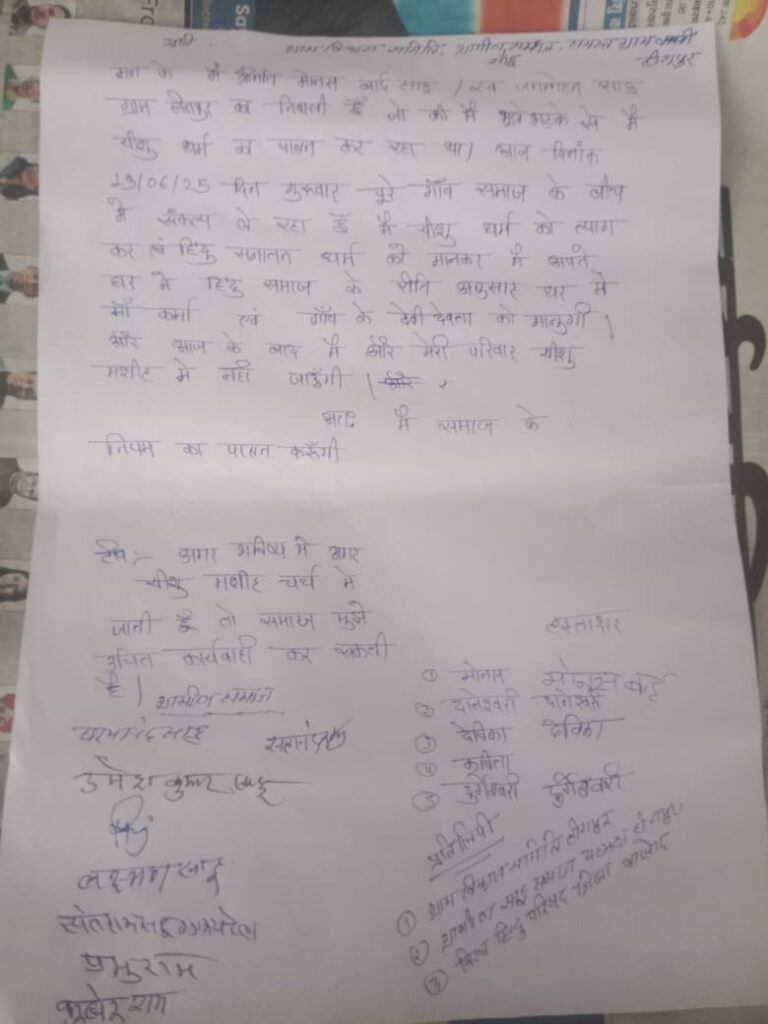 प्रति - ग्राम विकास समिति, ग्रामीण समाज, समस्त ग्रामवासी
हीरापुर
श्रीमति मोनस बाई साहू / स्व. जगमोहन साहू
ग्राम हीरापुर का निवासी हूँ जो की मै भुले भटके से मै
यीशु धर्म का पालन कर रहा था। आज दिनांक
19/06/25 दिन गुरुवार पुरे गाँव समाज के बीच
मे संकल्प ले रहा हूँ मै यीशु धर्म को त्याग
कर एवं हिंदु सनातन धर्म को मानकर मै अपने
घर मे हिंदु समाज के रीति अनुसार घर मे
माँ कर्मा एवं गाँव के देवी देवता को मानुगी।
और आज के बाद मै और मेरी परिवार यीशु
मशीह मे नही जाऊँगी।
अतः मै समाज के
नियम का पालन करूँगी
टीप:- अगर भविष्य मे अगर
यीशु मशीह चर्च मे
जाती हूँ तो समाज मुझे
उचित कार्यवाही कर सकती
है।
ग्रामीण समाज
उमेश कुमार साहू
लक्ष्मण साहू
प्रभुराम
कुबेर राम
हस्ताक्षर
① मोनस मोनस बाई
② दानेश्वरी दानेश्वरी
③ देविका देविका
④ कविता
⑤ दुर्गेश्वरी दुर्गेश्वरी
प्रतिलिपी
① ग्राम विकास समिति हीरापुर
② ग्रामीण साहू समाज अध्यक्ष हीरापुर
③ विश्व हिन्दु परिषद जिला बालोद